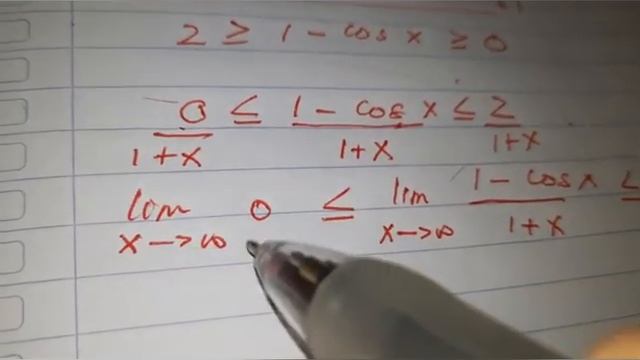 2 ≥ 1 - cos x ≥ 0
0/(1+x) ≤ (1 - cos x)/(1+x) ≤ 2/(1+x)
lim x→∞ 0 ≤ lim x→∞ (1 - cos x)/(1+x) ≤